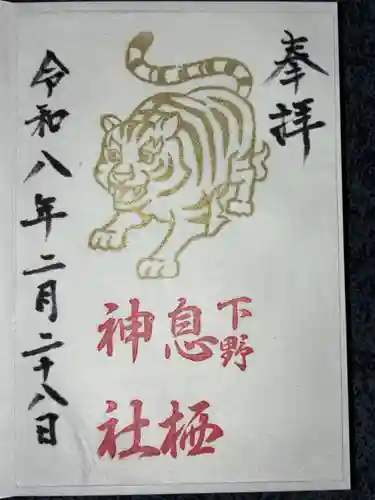 奉拝
下野
息栖
神社
令和八年二月二十八日